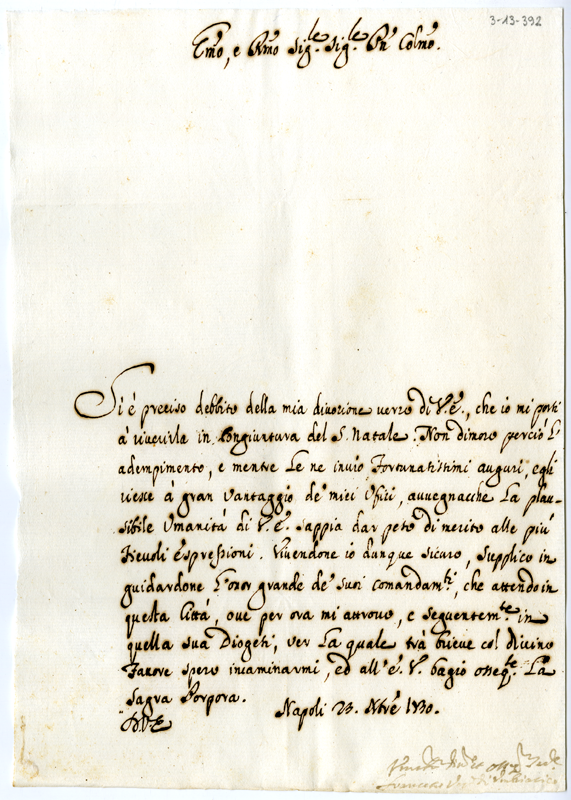 3-13-392
Emo, e Rmo Sig.le Sig.le Pñe Colmo.
Si é preciso debbito della mia divozione verso di V.E., che io mi porti
à riverirla in Congiuntura del S. Natale. Non dimoro perciò l'
adempimento, e mentre Le ne invio Fortunatissimi auguri, egli
riesce à gran vantaggio de' miei Ofici, auvegnacche La plau-
sibile Umanità di V.E. sappia dar peso di merito alle più
Fievoli espressioni. Vivendone io dunque sicuro, Supplico in
guidardone l'onor grande de' suoi comandam.ti, che attendo in
questa Città, ove per ora mi attrovo, e seguentem.te in
quella sua Diogesi, ver La quale trà brieve col divino
Favore spero incaminarmi, ed all'E.V. bagio osseq.te La
Sagra Porpora. Napoli 23. Xbre 1730.
D.V.E.